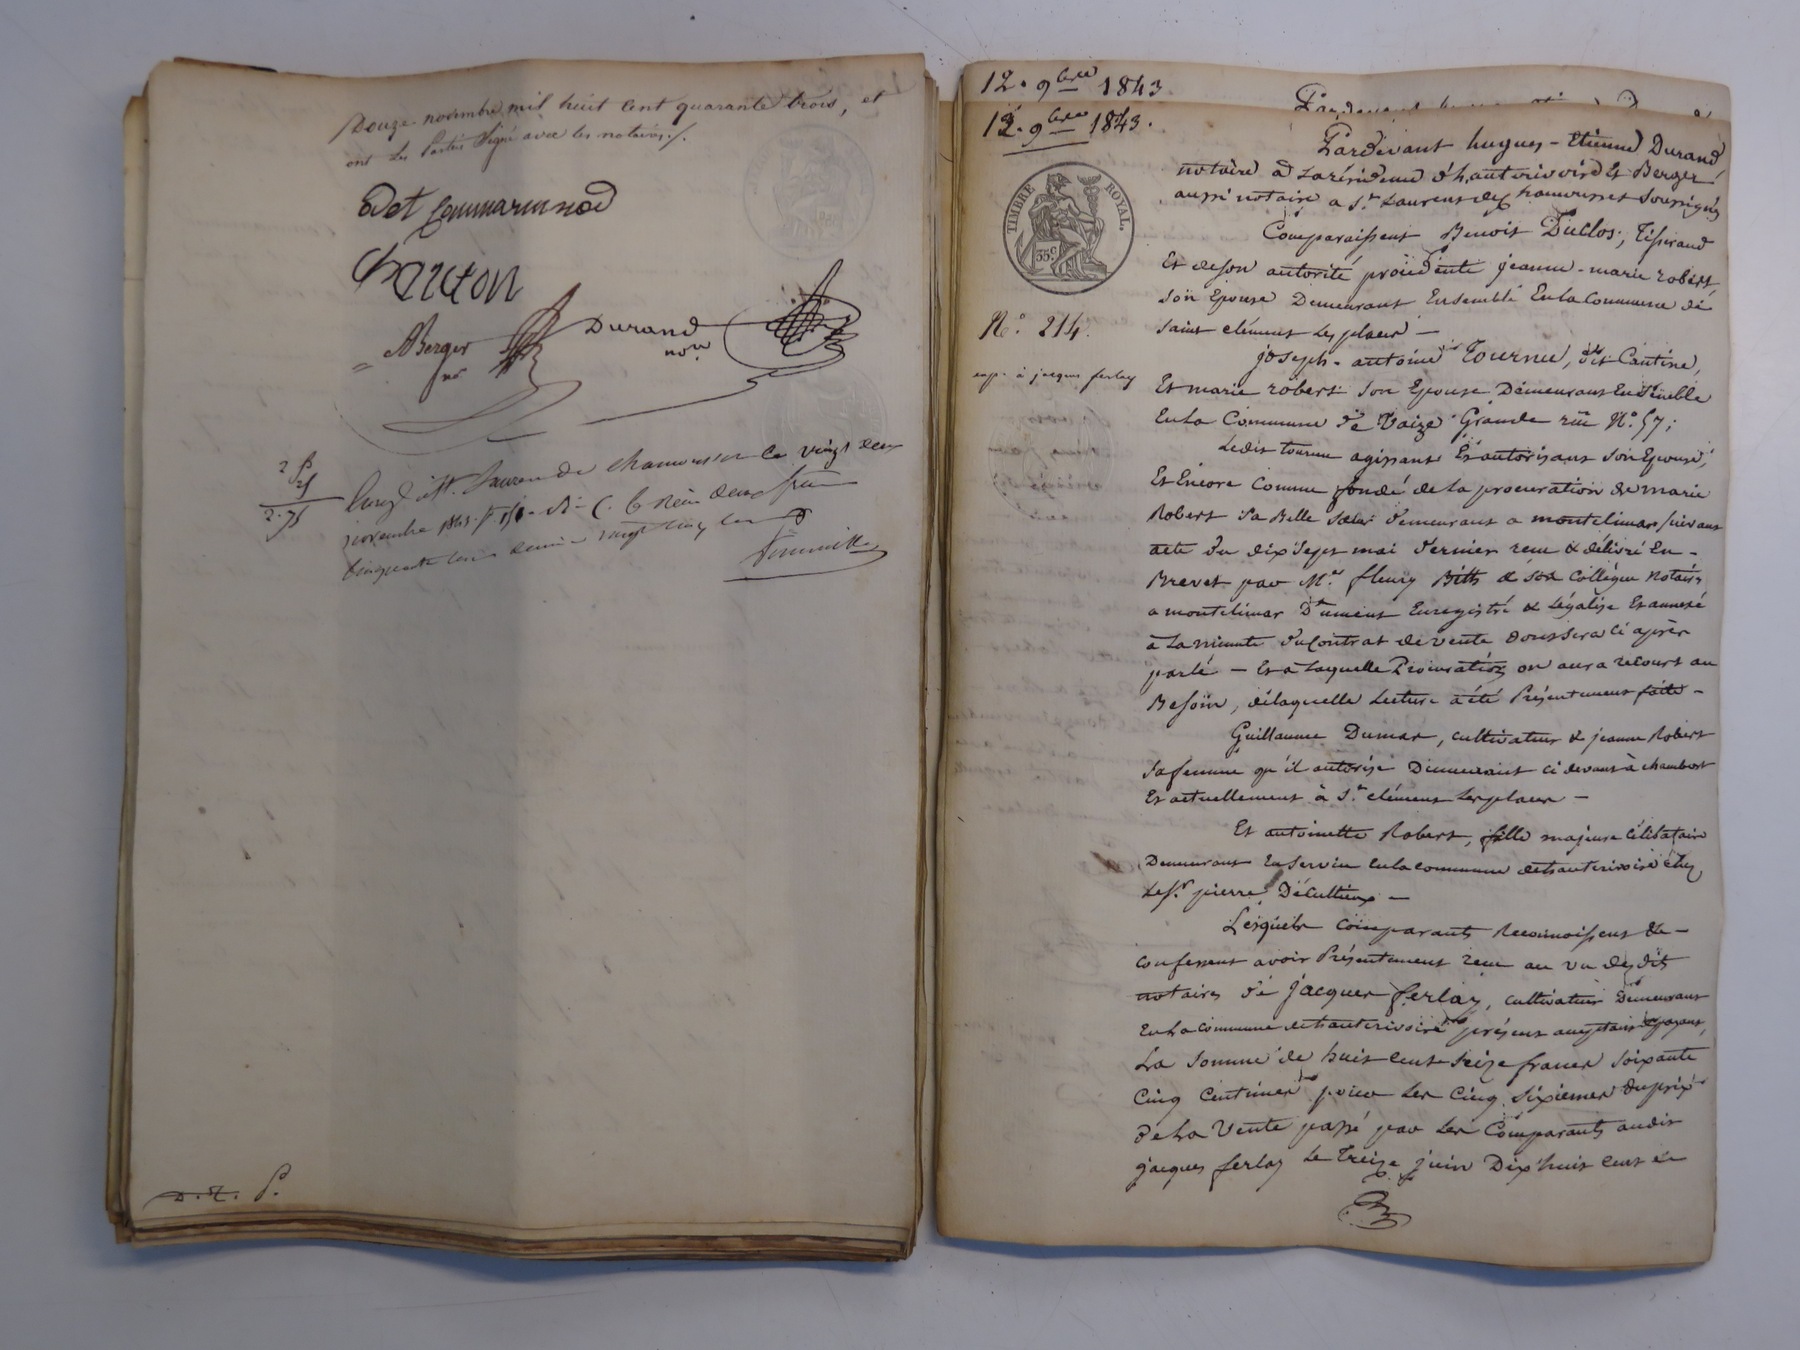 Douze novembre mil huit cent quarante trois, et
ont les Parties Signé avec les notaires ./.
Chanton
ABerger
nre
Durand
nore
2 f
25
2.75
Enregt. à St. Laurent de chamousset le vingt deux
novembre 1843. f° deux francs
Cinquante centimes vingt cinq
D. R. f.
12. 9bre 1843
12. 9bre 1843.
TIMBRE ROYAL.
35 c
N.° 214.
exp. à jacques ferlay
Pardevant hugues - Etienne Durand
notaire à La résidence d'hauterivoire Et Berger
aussi notaire a St. Laurent de chamousset Soussignés
Comparaissent Benoit Duclos, Tisserand
Et de son autorité procédente jeanne-marie robert,
son Epouse Demeurant Ensemble En la Commune de
saint clément Les places —
joseph-antoine Tournu, dit Cantine,
Et marie robert son Epouse Demeurant Ensemble
En la Commune de Vaize Grande rue N.° 57;
Ledit tournu agissant Et autorisant son Epouse,
Et Encore Comme fondé de La procuration de marie
Robert Sa Belle Sœur demeurant a montelimar suivant
acte du dix Sept mai dernier recu & délivré En -
Brevet par Me. fleury & son Collègue Notaires
a montelimar Dument Enregistré & Légalisé Et annexé
à La minute du Contrat de vente dont sera ci après
parlé — Et a Laquelle Procuration on aura recours au
Besoin, de laquelle Lecture a été Présentement faite -
Guillaume Dumas, cultivateur & jeanne Robert
Sa femme qu'il autorise Demeurant ci devant à chambost
Et actuellement à St. clément Les places —
Et antoinette Robert, fille majeure célibataire
Demeurant En Service En la commune d'hauterivoire chez
Le sr. pierre Décultieux —
Lesquels comparants Reconnoissent & -
confessent avoir Présentement recu au vu desdits
notaires de jacques ferlay, cultivateur Demeurant
En La commune d'hauterivoire présent acceptant & payant,
La Somme de huit cent Seize francs Soixante
Cinq Centimes pour Les Cinq Sixiemes du prix
de La Vente passé par Les Comparants audit
jacques ferlay Le Treize juin Dix huit cent &